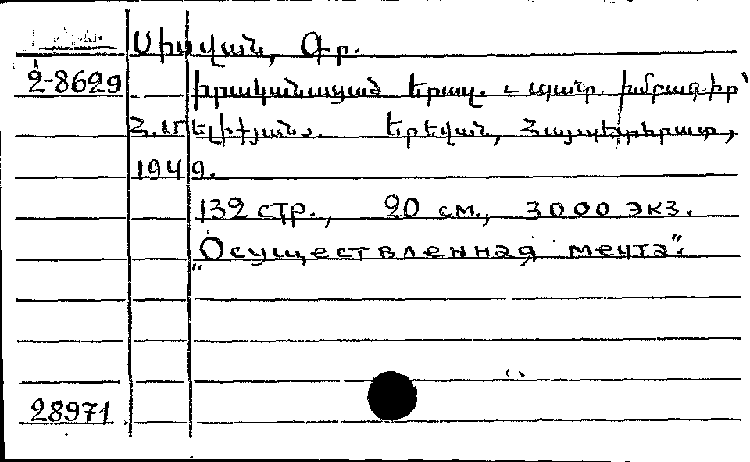 Սիսվան, Գր.
2-8629 Իրականացած երազ. պատ. խմբագիր՝
Հ. Մելիքյան. Երեվան, Հայպետհրատ,
1949.
132 стр., 20 см., 3000 экз.
"Осуществленная мечта".
28971